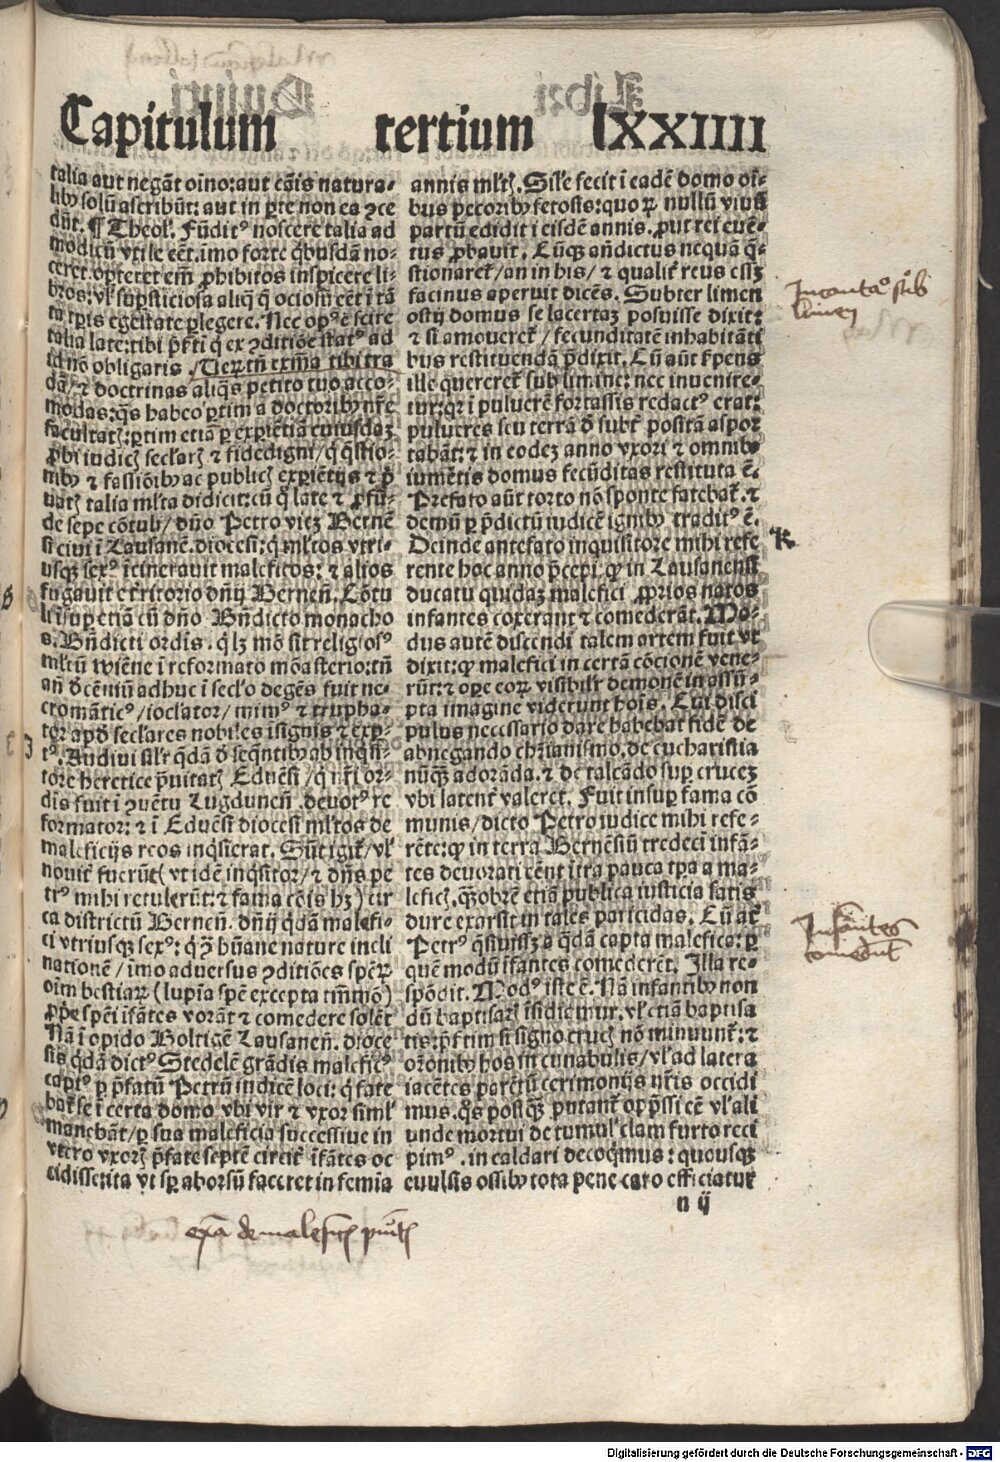 Capitulum tertium lxxiiii
talia aut negāt oīno: aut cāis natura-
libꝰ solū ascribūt: aut in ꝑte non ea ꝯce
dūt. ¶ Theol. Fūditꝰ noscere talia ad
modicū vtile eēt. imo forte q̄busdā no-
ceret. oporteret em̄ ꝓhibitos inspicere li-
bros: vel supsticiosa aliq̄ q̄ ociosū eēt i tā
ta tꝑis egestate ꝑlegere. Nec opꝰ ē scire
talia late: tibi p̄ẜti q̄ ex ꝯditiōe statꝰ ad
id nō obligaris. Verūtn̄ exm̄a tibi tra
dā/ ⁊ doctrinas aliq̄s petito tuo acco-
modas: q̄s habeo ꝑtim a doctoribꝰ nr̄e
facultatꝭ: ꝑtim etiā ꝑ expiētiā cuiusdaꝫ
ꝓbi iudicꝭ seclarꝭ ⁊ fidedigni/ q̄ q̄stio-
nibꝰ ⁊ fassiōibꝰ ac publicꝭ expiētijs ⁊ p̄
uatꝭ talia ml̄ta didicit: cū q̄ late ⁊ ꝓfū-
de sepe cōtuli/ dn̄o Petro
ciui i Lausanē. diocesi: q̄ ml̄tos vtri-
usqꝫ sexꝰ icinerauit maleficos: ⁊ alios
fugauit e t̄ritorio dn̄ij Bernen̄. Cōtu
li isup etiā cū dn̄o Bn̄dicto monacho
s. Bn̄dicti ordis. q̄ lꝫ mō sit religiosꝰ
ml̄tū wiēne i reformato mōasterio: tn̄
an̄ decēniū adhuc i seclo degēs fuit ne-
cromāticꝰ/ ioclator/ mimꝰ ⁊ trupha-
tor apd̄ seclares nobiles isignis ⁊ expꝰ-
tꝰ. Audiui silr q̄dā de seq̄ntibꝰ ab inq̄si-
tore heretice p̄uitatꝭ Eduēsi/ q̄ nr̄i or-
dis fuit i ꝯuētu Lugdunen̄. deuotꝰ re
formator: ⁊ i Eduēsi diocesi ml̄tos de
maleficijs reos inq̄sierat. Sūt igit̄/ vl̓
nouit̄ fuerūt (vt idē inq̄sitor/ ⁊ dn̄s pe
trꝰ mihi retulerūt: ⁊ fama cōis hꝫ) cir
ca districtū Bernen̄. dn̄ij q̄dā malefi-
ci vtriusqꝫ sexꝰ: q̄ ꝯ̄ hūane nature incli
nationē/ imo aduersus ꝯditiōes spērꝝ
oīm bestiarꝝ (lupīa spē excepta tm̄mō)
ꝓp̄e spēi ifātes vorāt ⁊ comedere solēt
Nā i opido Boltigē Lausanen̄. dioce
sis q̄dā dictꝰ Stedelē grādis maleficꝰ
captꝰ ꝑ p̄fatū Petrū iudicē loci: q̄ fate
bat̄ se i certa domo vbi vir ⁊ vxor siml̄
manebāt/ ꝑ sua maleficia successiue in
vtero vxorꝭ p̄fate septē circit̄ ifātes oc
cidisse: ita vt sp̄ aborsū faceret in femia
annis ml̄tꝭ. Sil̓e fecit i eadē domo oī-
bus pecoribꝰ fetosis: quorꝝ nullū viuū
partū edidit i eisdē annis. ꝓut rei euē-
tus ꝓbauit. Cūqꝫ an̄dictus nequā q̄-
stionaret̄/ an in his/ ⁊ qualit̄ reus eēꝫ
facinus aperuit dicēs. Subter limen
ostij domus se lacertaꝫ posuisse dixit:
⁊ si amoueret̄/ fecunditatē inhabitāti
bus restituendā p̄dixit. Cū aūt ẜpens
ille quereret̄ sub limine: nec inuenire-
tur: qr i puluerē fortassis redactꝰ erat:
pulueres seu terrā de subt̄ positā aspor
tabāt: ⁊ in eodeꝫ anno vxori ⁊ omnibꝰ
iumētis domus fecūditas restituta ē.
Prefato aūt torto nō sponte fatebat̄. ⁊
demū ꝑ p̄dictū iudicē ignibꝰ traditꝰ ē.
Deinde antefato inquisitore mihi refe
rente hoc anno p̄cepi. ꝙ in Lausanensi
ducatu quidaꝫ malefici ꝓprios natos
infantes coxerant ⁊ comederāt. Mo-
dus autē discendi talem artem fuit vt
dixit: ꝙ malefici in certā cōcionē vene-
rūt: ⁊ ope eorꝝ visibilr demonē in assū-
pta imagine viderunt hois. Cui disci
pulus necessario dare habebat fidē de
abnegando christianismo. de eucharistia
nūqꝫ adorāda. ⁊ de calcādo sup cruceꝫ
vbi latent̄ valeret. Fuit insup fama cō
munis/ dicto Petro iudice mihi refe-
rēte: ꝙ in terra Bernēsiū tredeci infā-
tes deuorati eēnt itra pauca tpa a ma-
leficꝭ. q̄ꝫobrē etiā publica iusticia satis
dure exarsit in tales paricidas. Cū aūt
Petrꝰ q̄siuissꝫ a q̄dā capta malefica: ꝑ
quē modū ifantes comederēt. Illa re-
spōdit. Modꝰ iste ē. Nā infantibꝰ non
dū baptisatꝭ isidiemur. vl̓ etiā baptisa
tis: p̄ẜtim si signo crucꝭ nō muniunt̄: ⁊
orōnibꝰ hos in cunabulis/ vl̓ ad latera
iacētes parētū cerimonijs nr̄is occidi
mus. q̄s postqꝫ putant̄ opp̄ssi eē vl̓ ali
unde mortui de tumul̓ clam furto reci
pimꝰ. in caldari decoq̄mus: quousqꝫ
euulsis ossibꝰ tota pene caro efficiatur
n ij
K
Infantes
comedūt